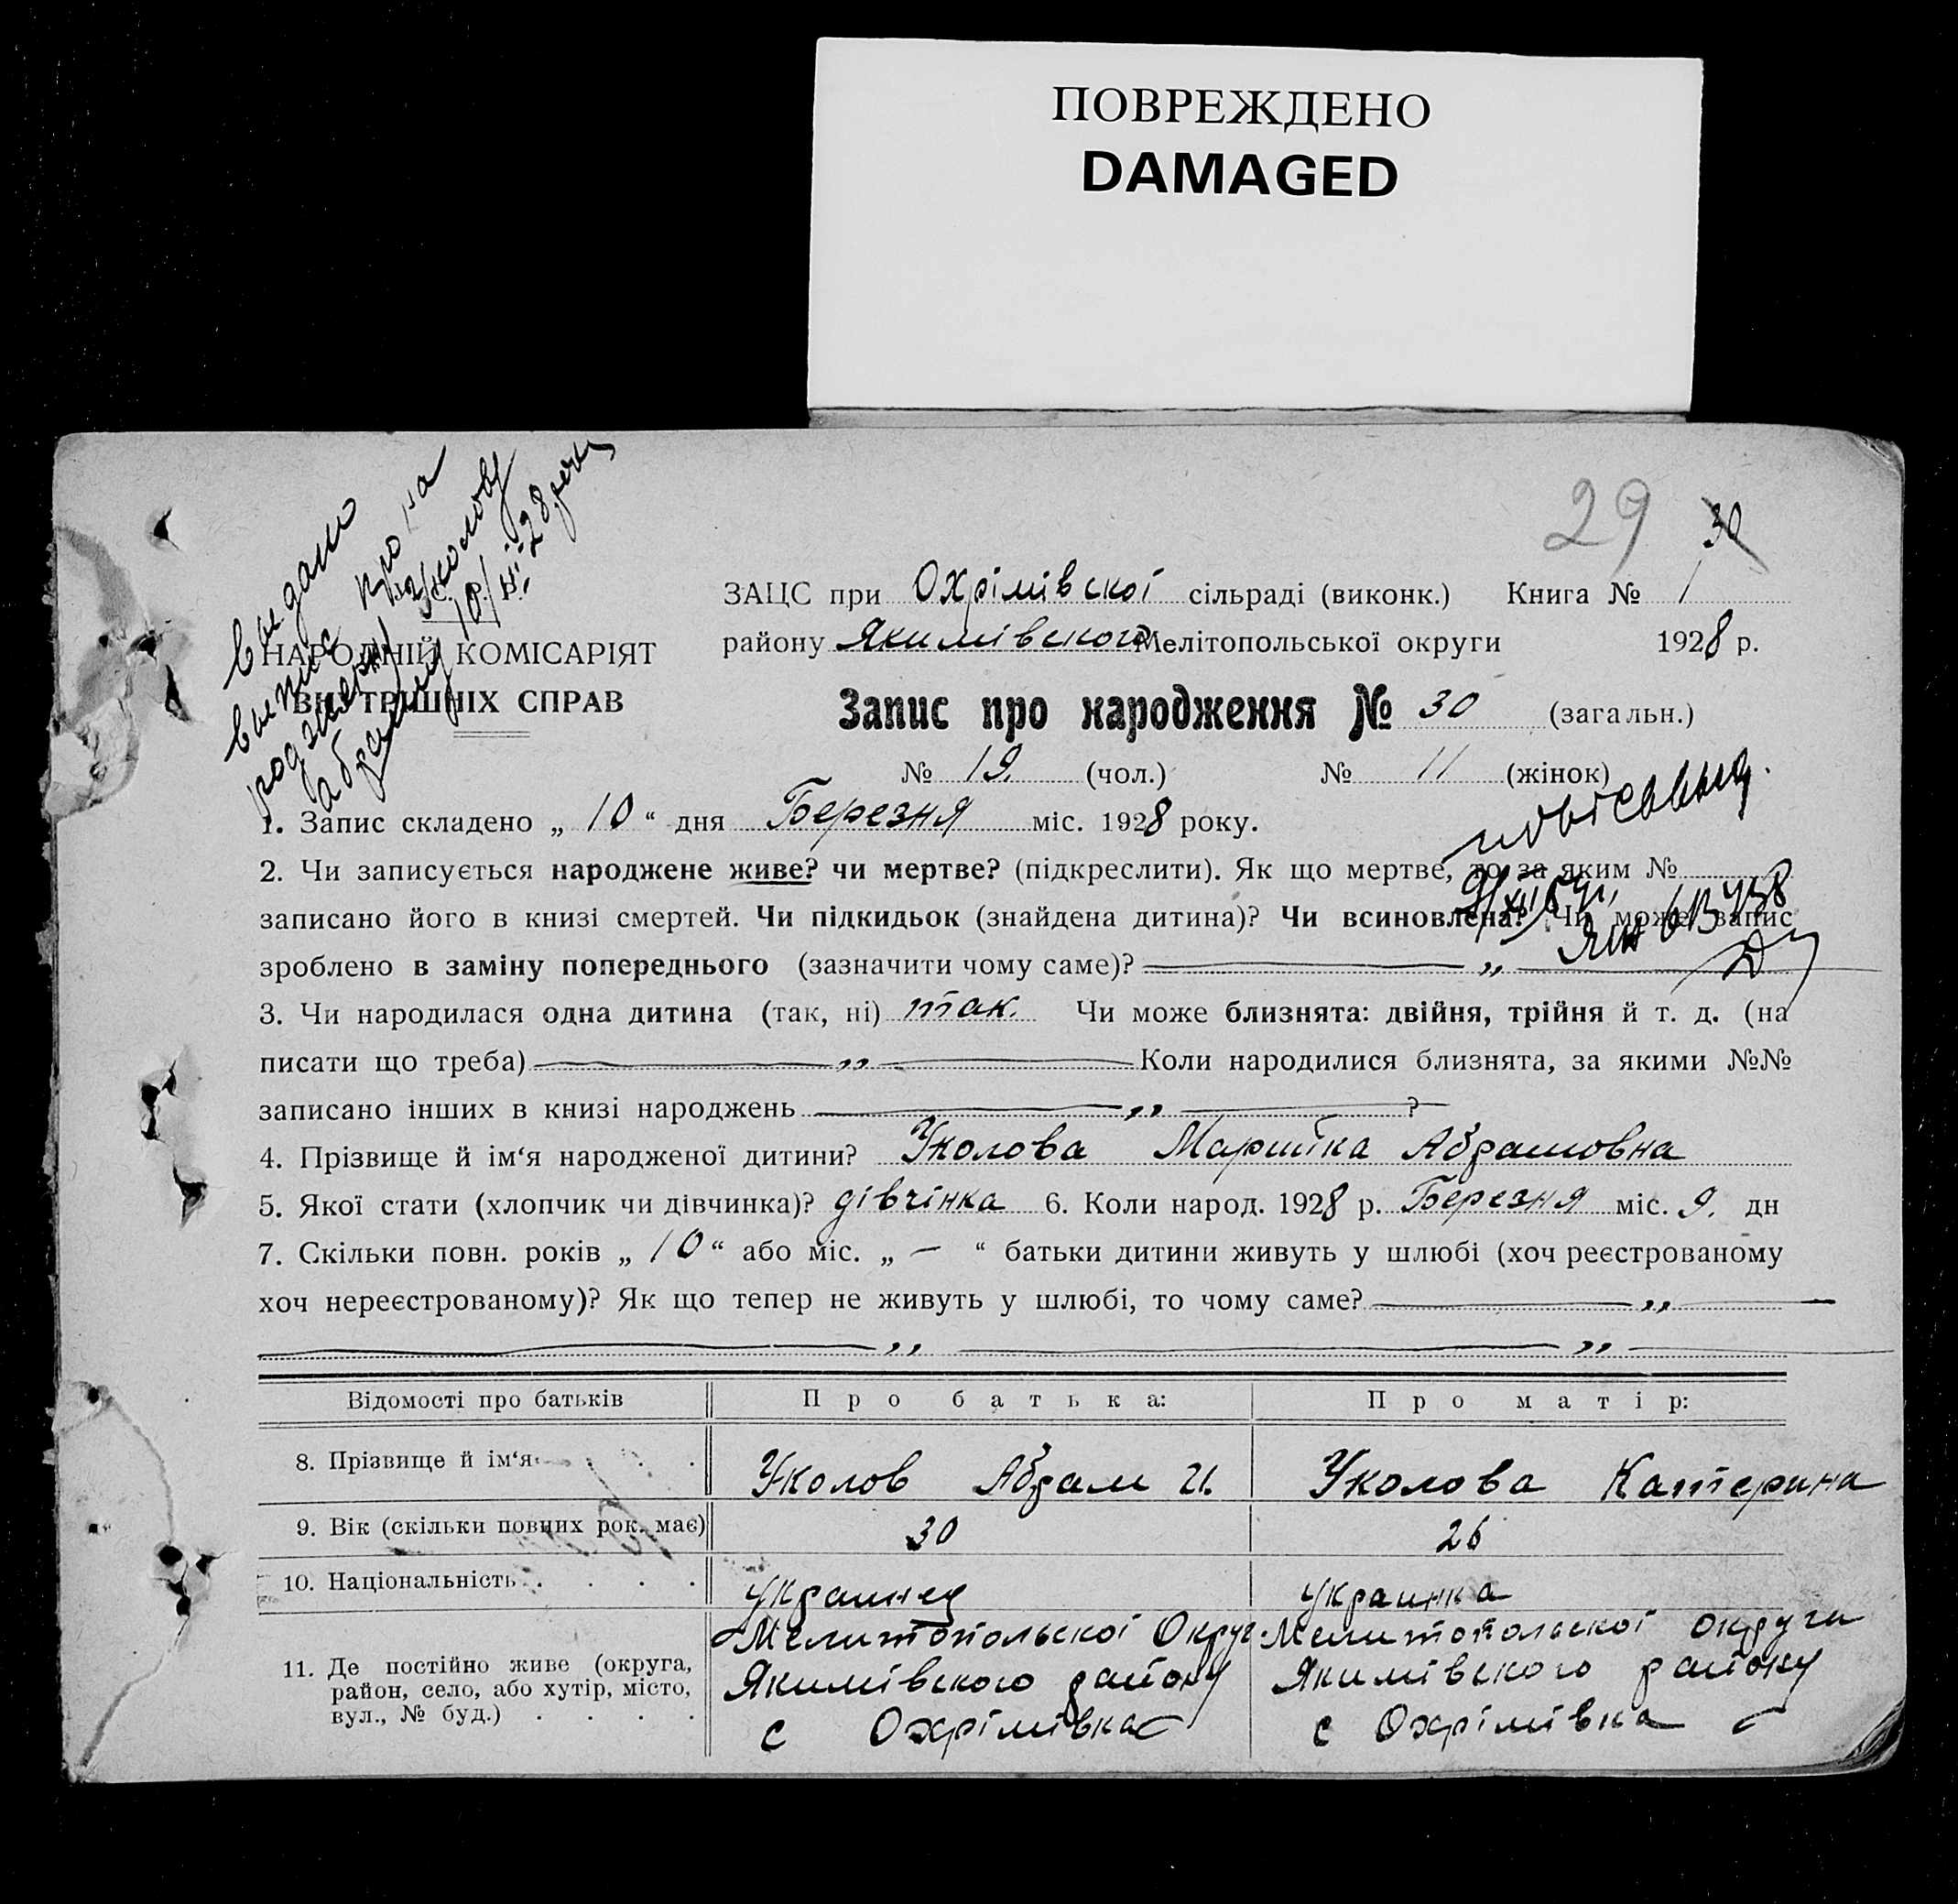 ПОВРЕЖДЕНО
DAMAGED
29 30
видано
випис про на
родження Уколову
Абраму 10/III 28 року
ЗАЦС при Охрімівскої сільраді (виконк.) Книга № 1
району Якимівского Мелітопольської округи 1928 р.
НАРОДНІЙ КОМІСАРІЯТ
ВНУТРІШНІХ СПРАВ
Запис про народження № 30 (загальн.)
№ 19. (чол.) № 11 (жінок)
1. Запис складено „ 10 “ дня Березня міс. 1928 року.
2. Чи записується народжене живе? чи мертве? (підкреслити). Як що мертве, то за яким №
записано його в книзі смертей. Чи підкидьок (знайдена дитина)? Чи всиновлена? Чи може запис
зроблено в заміну попереднього (зазначити чому саме)? „
3. Чи народилася одна дитина (так, ні) так. Чи може близнята: двійня, трійня й т. д. (на
писати що треба) „ Коли народилися близнята, за якими №№
записано інших в книзі народжень „ ?
4. Прізвище й ім‘я народженої дитини? Уколова Марийка Абрамовна
5. Якої стати (хлопчик чи дівчинка)? дівчінка 6. Коли народ. 1928 р. Березня міс. 9. дн
7. Скільки повн. років „ 10 “ або міс. „ — “ батьки дитини живуть у шлюбі (хоч реєстрованому
хоч нереєстрованому)? Як що тепер не живуть у шлюбі, то чому саме? „
„ „
Відомості про батьків Про батька: Про матір:
8. Прізвище й ім‘я Уколов Абрам И. Уколова Катерина
9. Вік (скільки повних рок. має) 30 26
10. Національність украинец украинка
11. Де постійно живе (округа, район, село, або хутір, місто, вул., № буд.)
Мелитопольскої Округ. Мелитопольскої округи
Якимівского району Якимівского району
с Охрімівка с Охрімівка